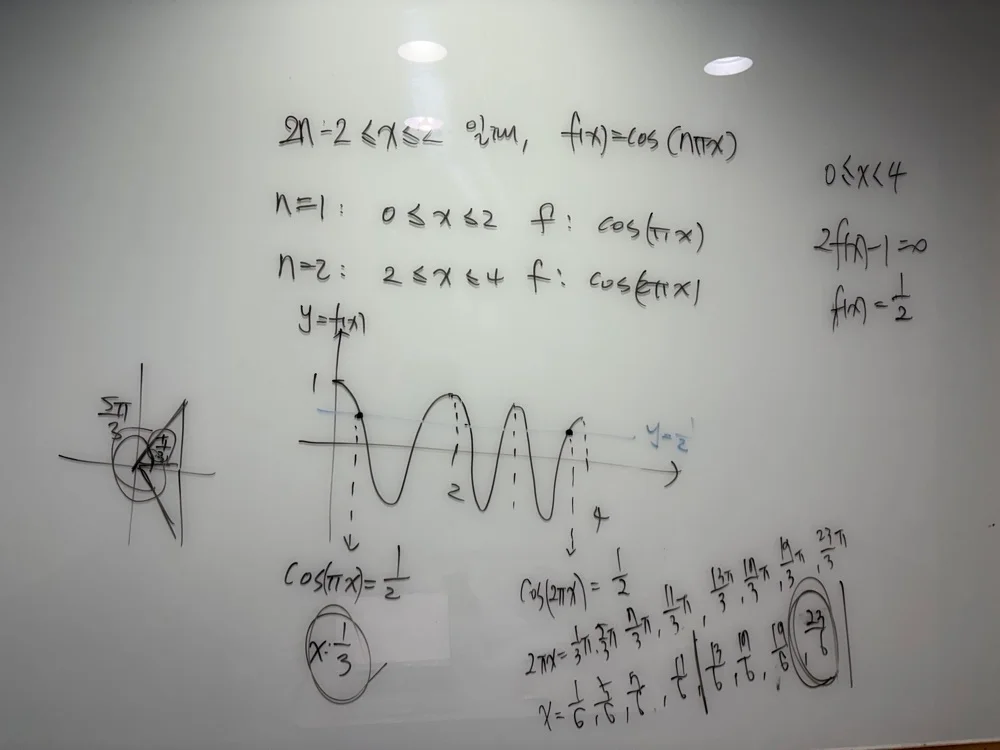 2n-2 ≤ x ≤ 2 일때, f(x)=cos(nπx)
n=1: 0 ≤ x ≤ 2 f: cos(πx)
n=2: 2 ≤ x ≤ 4 f: cos(2πx)
0≤x<4
2f(x)-1=0
f(x)=1/2
y=f(x)
1
y=1/2
2
4
5π/3
π/3
cos(πx)=1/2
x=1/3
cos(2πx)=1/2
2πx=1/3π, 5/3π, 7/3π, 11/3π, 13π/3, 17/3π, 19/3π, 23π/3
x=1/6, 5/6, 7/6, 11/6, 13/6, 17/6, 19/6, 23/6